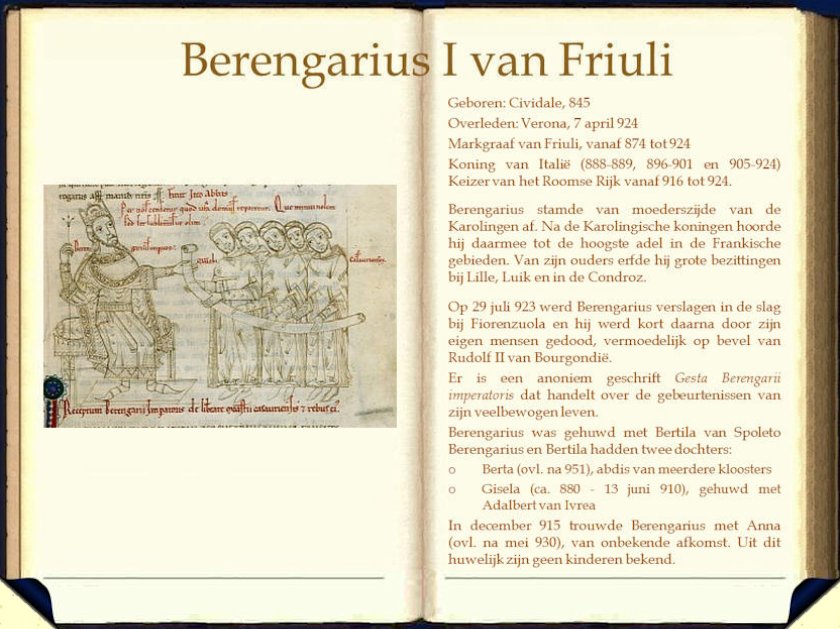 Berengarius I van Friuli
Geboren: Cividale, 845
Overleden: Verona, 7 april 924
Markgraaf van Friuli, vanaf 874 tot 924
Koning van Italië (888-889, 896-901 en 905-924)
Keizer van het Roomse Rijk vanaf 916 tot 924.
Berengarius stamde van moederszijde van de
Karolingen af. Na de Karolingische koningen hoorde
hij daarmee tot de hoogste adel in de Frankische
gebieden. Van zijn ouders erfde hij grote bezittingen
bij Lille, Luik en in de Condroz.
Op 29 juli 923 werd Berengarius verslagen in de slag
bij Fiorenzuola en hij werd kort daarna door zijn
eigen mensen gedood, vermoedelijk op bevel van
Rudolf II van Bourgondië.
Er is een anoniem geschrift Gesta Berengarii
imperatoris dat handelt over de gebeurtenissen van
zijn veelbewogen leven.
Berengarius was gehuwd met Bertila van Spoleto
Berengarius en Bertila hadden twee dochters:
o Berta (ovl. na 951), abdis van meerdere kloosters
o Gisela (ca. 880 - 13 juni 910), gehuwd met
Adalbert van Ivrea
In december 915 trouwde Berengarius met Anna
(ovl. na mei 930), van onbekende afkomst. Uit dit
huwelijk zijn geen kinderen bekend.